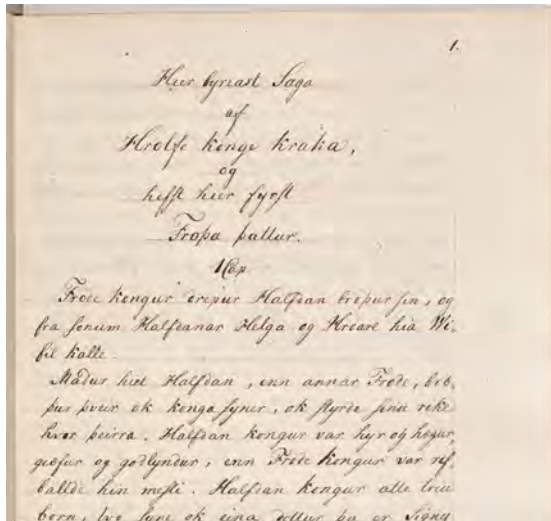 1.
Hier byriast Saga
af
Hrolfe konge kraka,
og
hefst hier fyrst
Froþa þattur.
1 Cap
Froþe kongur drepur Halfdan broþur sin, og
fra sonum Halfdanar Helga og Hroare hia Wi-
fil kalle.
Madur hiet Halfdan, enn annar Froþe, brö-
þur þveir ok konga syner, ok styrde sinu rike
hvor þeirra. Halfdan kongur var hyr og hægur,
giæfur og godlyndur, enn Froþe kongur var rif-
ballde hin mesti. Halfdan kongur atte triu
born, tvo syne ok eina dottur þa er Signy